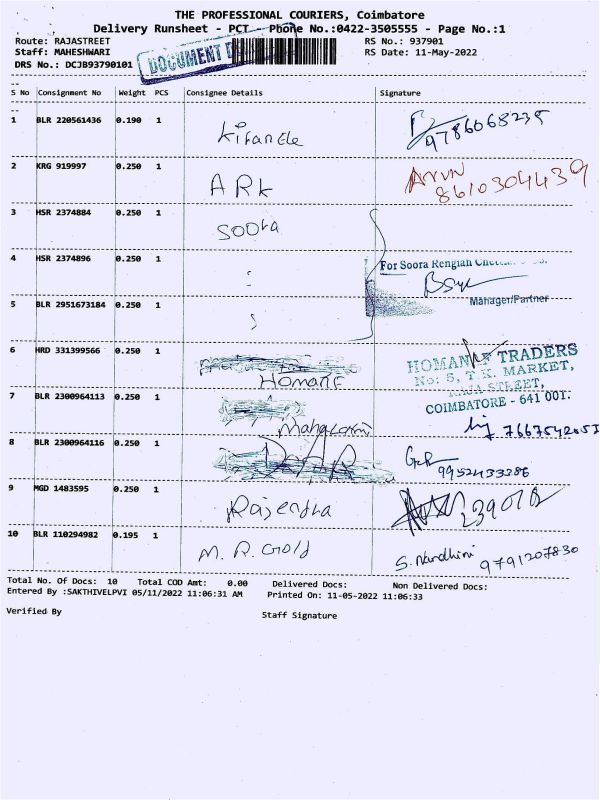 THE PROFESSIONAL COURIERS, Coimbatore
Delivery Runsheet - PCT - Phone No.:0422-3505555 - Page No.:1
Route: RAJASTREET RS No.: 937901
Staff: MAHESHWARI RS Date: 11-May-2022
DRS No.: DCJB93790101
DOCUMENT
S No Consignment No Weight PCS Consignee Details Signature
1 BLR 220561436 0.190 1 9786068235
2 KRG 919997 0.250 1 ARK ARUN
8610304439
3 HSR 2374884 0.250 1 Soora
4 HSR 2374896 0.250 1 For Soora Rengiah
Manager/Partner
5 BLR 2951673184 0.250 1
6 HRD 331399566 0.250 1 HOMANE HOMANE TRADERS
No: 5, T K. MARKET,
RAJA STREET,
COIMBATORE - 641 001.
7 BLR 2300964113 0.250 1 Mahalaxmi
8 BLR 2300964116 0.250 1 9952433386
9 MGD 1483595 0.250 1 Rajendra
10 BLR 110294982 0.195 1 M. R. Gold S. Nandhini 9791207830
Total No. Of Docs: 10 Total COD Amt: 0.00 Delivered Docs: Non Delivered Docs:
Entered By :SAKTHIVELPVI 05/11/2022 11:06:31 AM Printed On: 11-05-2022 11:06:33
Verified By Staff Signature